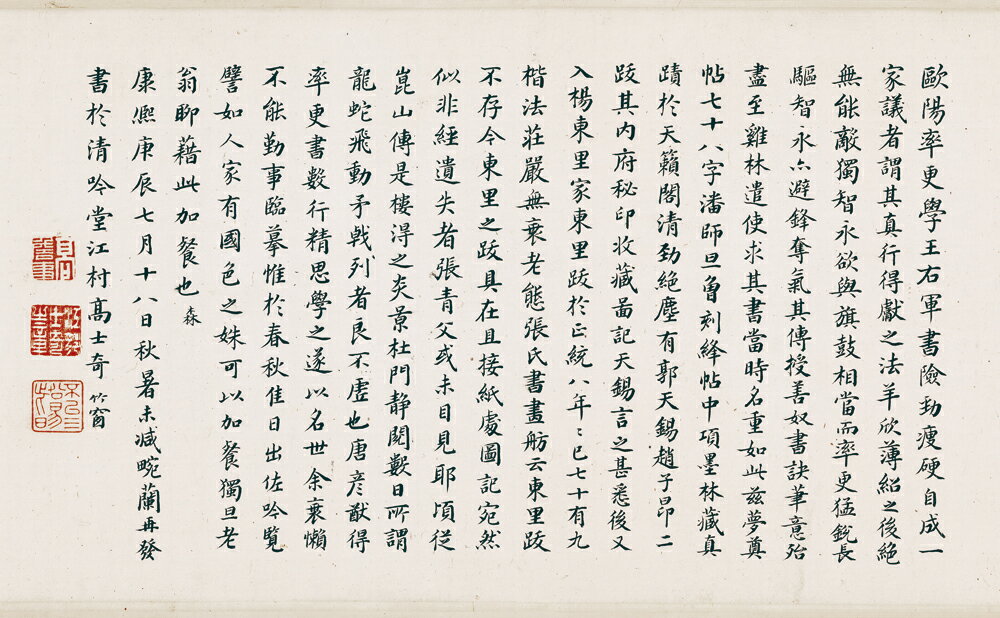 歐陽率更學王右軍書險勁瘦硬自成一
家議者謂其真行得獻之法羊欣薄紹之後絕
無能敵獨智永欲與旗鼓相當而率更猛銳長
驅智永亦避鋒奪氣其傳授善奴書訣筆意殆
盡至雞林遣使求其書當時名重如此茲夢奠
帖七十八字潘師旦曾刻絳帖中項墨林藏真
蹟於天籟閣清勁絕塵有郭天錫趙子昂二
跋其內府秘印收藏啚記天錫言之甚悉後又
入楊東里家東里跋於正統八年〻已七十有九
楷法莊嚴無衰老態張氏書畫舫云東里跋
不存今東里之跋具在且接紙處圖記宛然
似非經遺失者張青父或未目見耶頃從
崑山傳是樓得之炎景杜門靜閱數日所謂
龍蛇飛動矛戟列者良不虛也唐彥猷得
率更書數行精思學之遂以名世余衰懶
不能勤事臨摹惟於春秋佳日出佐吟覽
譬如人家有國色之姝可以加餐獨旦老
翁聊藉此加餐也 森
康熙庚辰七月十八日秋暑未減畹蘭再發
書於清吟堂江村高士奇 竹窗